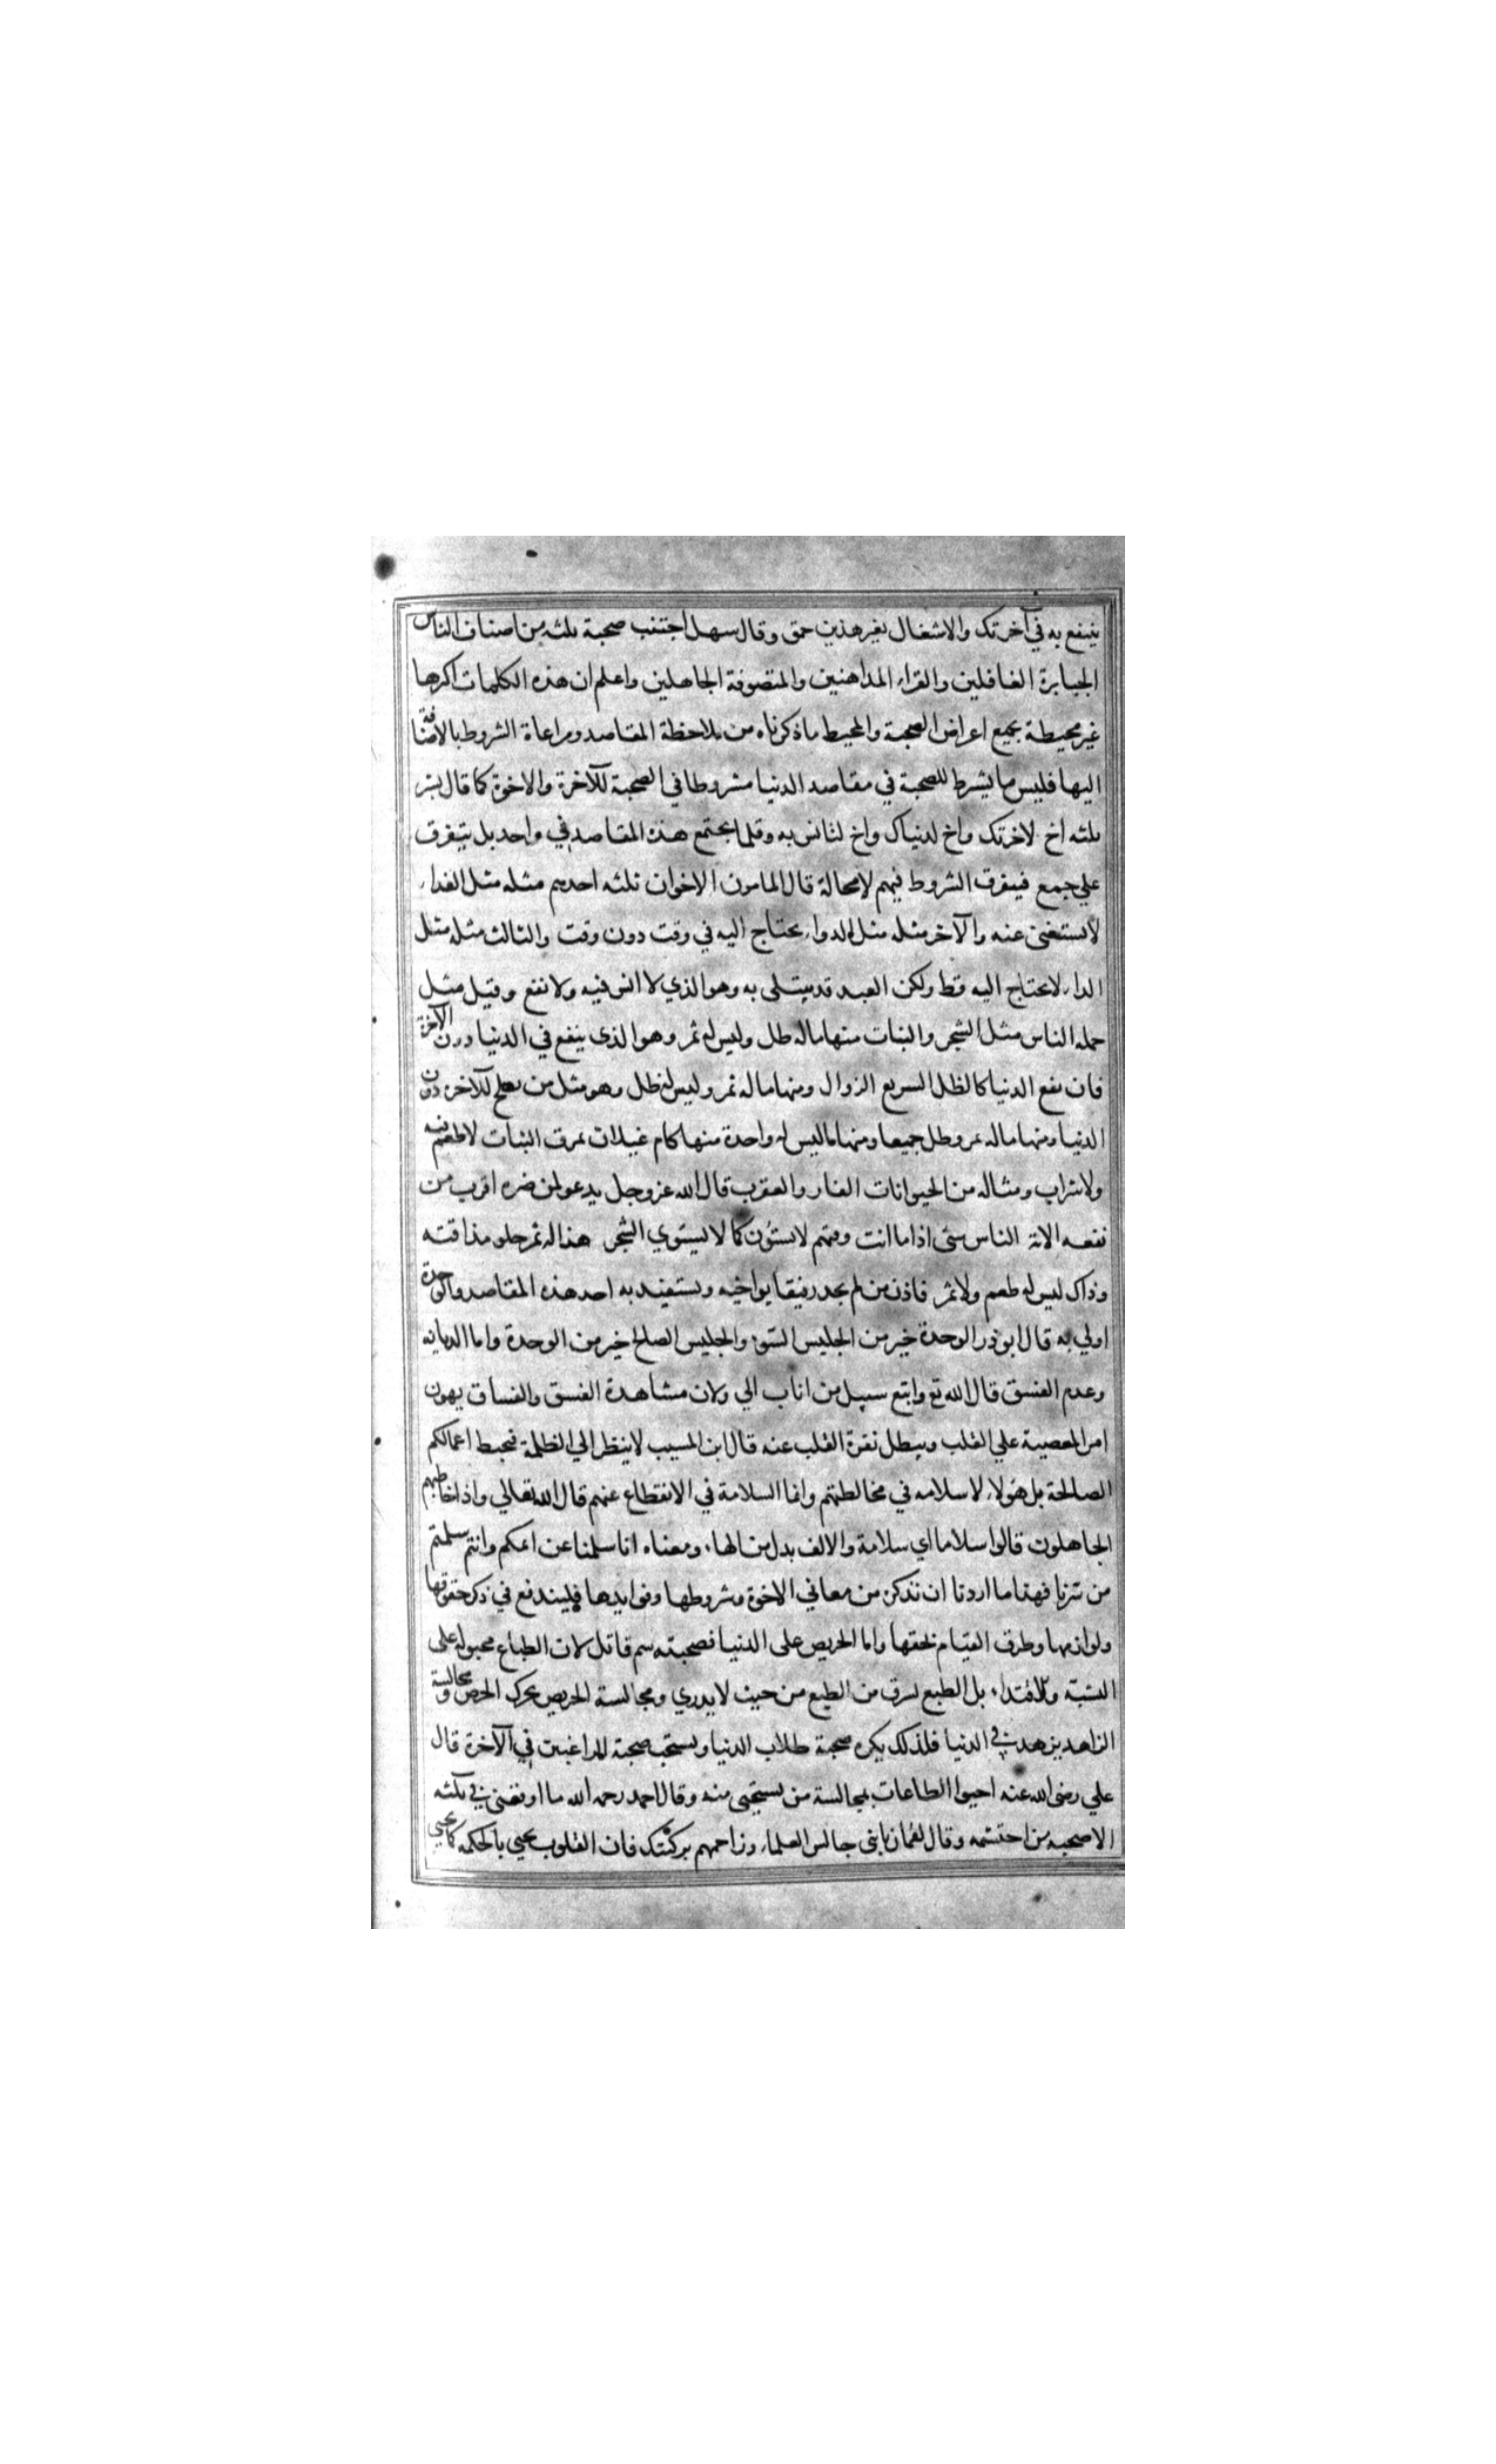 ينتفع به في آخرتك والاشتغال بغير هذين حمق وقال سهل اجتنب صحبة ثلثه من اصناف الناس
الجبابرة الغافلين والقراء المداهنين والمتصوفة الجاهلين واعلم ان هذه الكلمات اكثرها
غير محيطة بجميع اعراض الصحبة والمحيط ماذكرناه من ملاحظة المقاصد ومراعاة الشروط بالاضافة
اليها فليس ما يشرط للصحبة في مقاصد الدنيا مشروطا في الصحبة للآخرة والاخوة كما قال بشر
ثلثه اخ لاخرتك واخ لدنياك واخ لتانس به وقلما يجتمع هذه المقاصد في واحد بل يتفرق
علي جمع فيتفرق الشروط فيهم لامحالة قال المامون الاخوان ثلثه احدهم مثله مثل الغداء
لايستغنى عنه والآخر مثله مثل الدواء يحتاج اليه في وقت دون وقت والثالث مثله مثل
الداء لايحتاج اليه قط ولكن العبد قد يبتلى به وهو الذي لا انس فيه ولا نفع وقيل مثل
جمله الناس مثل الشجر والنبات منها ماله ظل وليس له ثمر وهو الذى ينفع في الدنيا دون الآخرة
فان نفع الدنيا كالظل السريع الزوال ومنها ماله ثمر وليس له ظل وهو مثل من يصلح للآخرة دون
الدنيا ومنها ماله ثمر وظل جميعا ومنها ماليس له واحدة منها كام غيلان تمزق النبات لاطعم فيه
ولاشراب ومثاله من الحيوانات الفار والعقرب قال الله عز وجل يدعو لمن ضره اقرب من
نفعه الاية الناس شتى اذا ما انت وقتهم لايستوُن كما لا يستوي الشجر هذا له ثمر حلو مذاقته
وذاك ليس له طعم ولا ثمر فاذن من لم يجد رفيقا يواخيه ويستفيد به احد هذه المقاصد والوحدة
اولي به قال ابوذر الوحدة خير من الجليس السوء والجليس الصلح خير من الوحدة واما الديانه
وعدم الفسق قال الله تع واتبع سبيل من اناب الي ولان مشاهدة الفسق والفساق يهون
امر المعصية علي القلب ويبطل نفرة القلب عنه قال ابن المسيب لاينظر الي الظلمة فيحبط اعمالكم
الصالحة بل هؤلاء لا سلامه في مخالطتهم وانما السلامة في الانقطاع عنهم قال الله تعالي واذا خاطبهم
الجاهلون قالوا سلاما اي سلامة والالف بدل من الهاء ومعناه انا سلمنا عن اثمكم وانتم سلمتم
من شرنا فهذا ما اردنا ان نذكر من معاني الاخوة وشروطها وفوايدها فليندفع في ذكر حقوقها
ولوازمها وطرق القيام بحقها واما الحريص على الدنيا فصحبته سم قاتل لان الطباع مجبوله على
التشبه والاقتداء بل الطبع يسرق من الطبع من حيث لايدري ومجالسة الحريص يحرك الحرص ومجالسة
الزاهد يزهد في الدنيا فلذلك يكره صحبة طلاب الدنيا ويستحب صحبة الراغبين في الآخرة قال
علي رضى الله عنه احيوا الطاعات بمجالسة من يستحيى منه وقال احمد رحمه الله ما اوقعنى في ثلثه
الاصحبه من احتشمه وقال لقمان يابنى جالس العلماء وزاحمهم بركبتك فان القلوب يحيي بالحكمه كما يحيي